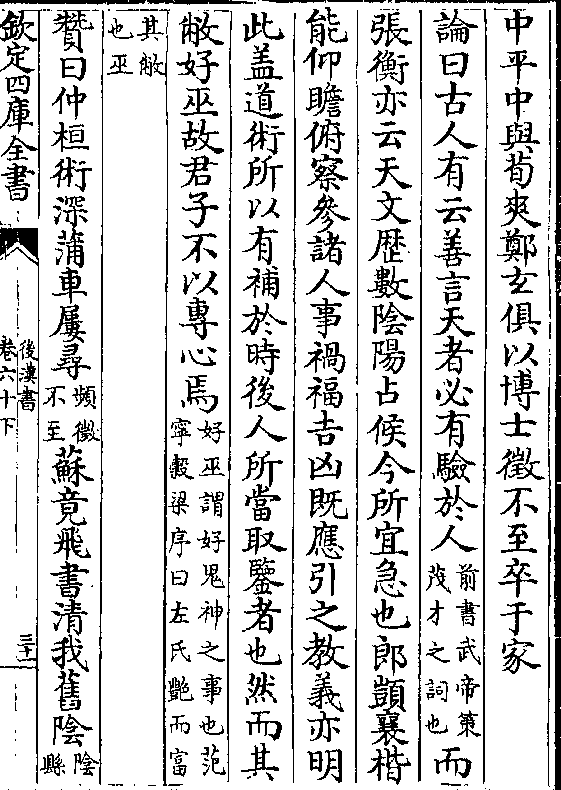 中平中與荀爽鄭玄俱以博士徵不至卒于家
論曰古人有云善言天者必有驗於人前書武帝策茂才之詞也而
張衡亦云天文歴數陰陽占候今所宜急也郎顗襄楷
能仰瞻俯察參諸人事禍福吉凶既應引之教義亦明
此盖道術所以有補於時後人所當取鑒者也然而其
敝好巫故君子不以專心焉好巫謂好鬼神之事也范寧榖梁序曰左氏艶而富
其敝也巫
贊曰仲桓術深蒲車屢尋頻徵不至蘇竟飛書清我舊陰陰縣
欽定四庫全書
後漢書
卷六十下
三十一